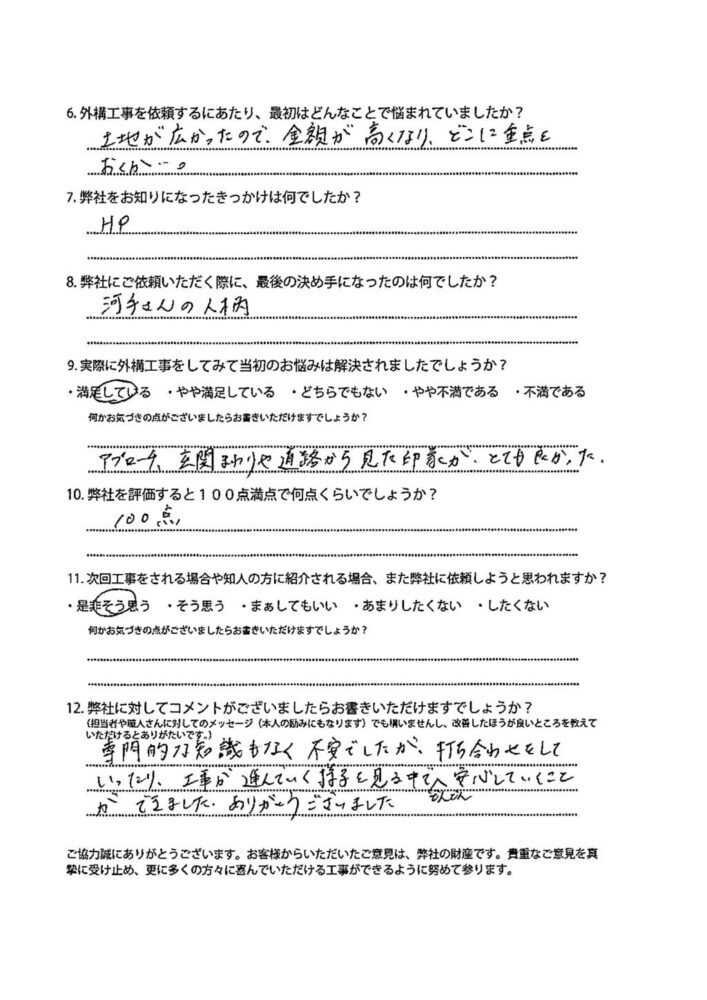 6. 外構工事を依頼するにあたり、最初はどんなことで悩まれていましたか？
土地が広かったので、金額が高くなり、どこに重点を
おくか…。
7. 弊社をお知りになったきっかけは何でしたか？
HP
8. 弊社にご依頼いただく際に、最後の決め手になったのは何でしたか？
河手さんの人柄
9. 実際に外構工事をしてみて当初のお悩みは解決されましたでしょうか？
・満足している ・やや満足している ・どちらでもない ・やや不満である ・不満である
何かお気づきの点がございましたらお書きいただけますでしょうか？
アプローチ、玄関まわりや道路から見た印象が、とても良かった。
10. 弊社を評価すると１００点満点で何点くらいでしょうか？
100点
11. 次回工事をされる場合や知人の方に紹介される場合、また弊社に依頼しようと思われますか？
・是非そう思う ・そう思う ・まぁしてもいい ・あまりしたくない ・したくない
何かお気づきの点がございましたらお書きいただけますでしょうか？
12. 弊社に対してコメントがございましたらお書きいただけますでしょうか？
（担当者や職人さんに対してのメッセージ（本人の励みにもなります）でも構いませんし、改善したほうが良いところを教えて
いただけるとありがたいです。）
専門的な知識もなく不安でしたが、打ち合わせをして
いったり、工事が進んでいく様子を見る中でどんどん安心していくこと
ができました。ありがとうございました
ご協力誠にありがとうございます。お客様からいただいたご意見は、弊社の財産です。貴重なご意見を真
摯に受け止め、更に多くの方々に喜んでいただける工事ができるように努めて参ります。